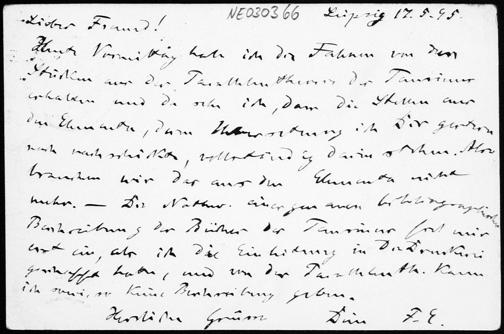 NE030366
Leipzig 17.5.95.
Lieber Freund!
Heute Vormittag habe ich die Fahnen von den
Stücken aus der Parallelentheorie des Taurinus
erhalten und da sehe ich, dass die Stellen aus
den Elementa, deren Übersetzung ich Dir gestern
noch nachschickte, vollständig darin stehen. Also
brauchen wir das aus den Elementa nicht
mehr. — Die Nothw. einer genauen bibliographischen
Beschreibung der Bücher des Taurinus fiel mir
erst ein, als ich die Einleitung in Druckerei
geschafft hatte, und von der Parallelenth. kann
ich sowieso keine Beschreibung geben.
Herzliche Grüsse Dein F. E.